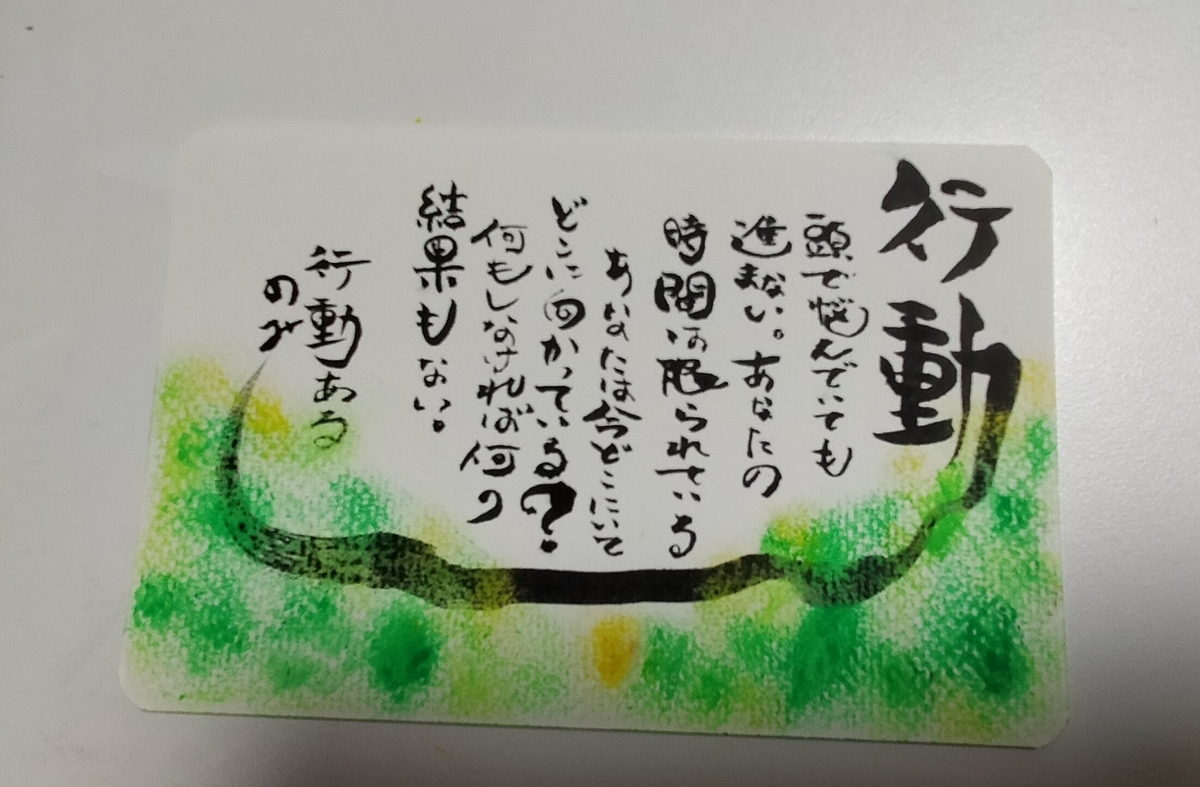 行動
頭で悩んでいても
進まない。あなたの
時間は限られている
あなたは今どこにいて
どこに向かっている?
何もしなければ何の
結果もない。
行動ある
のみ